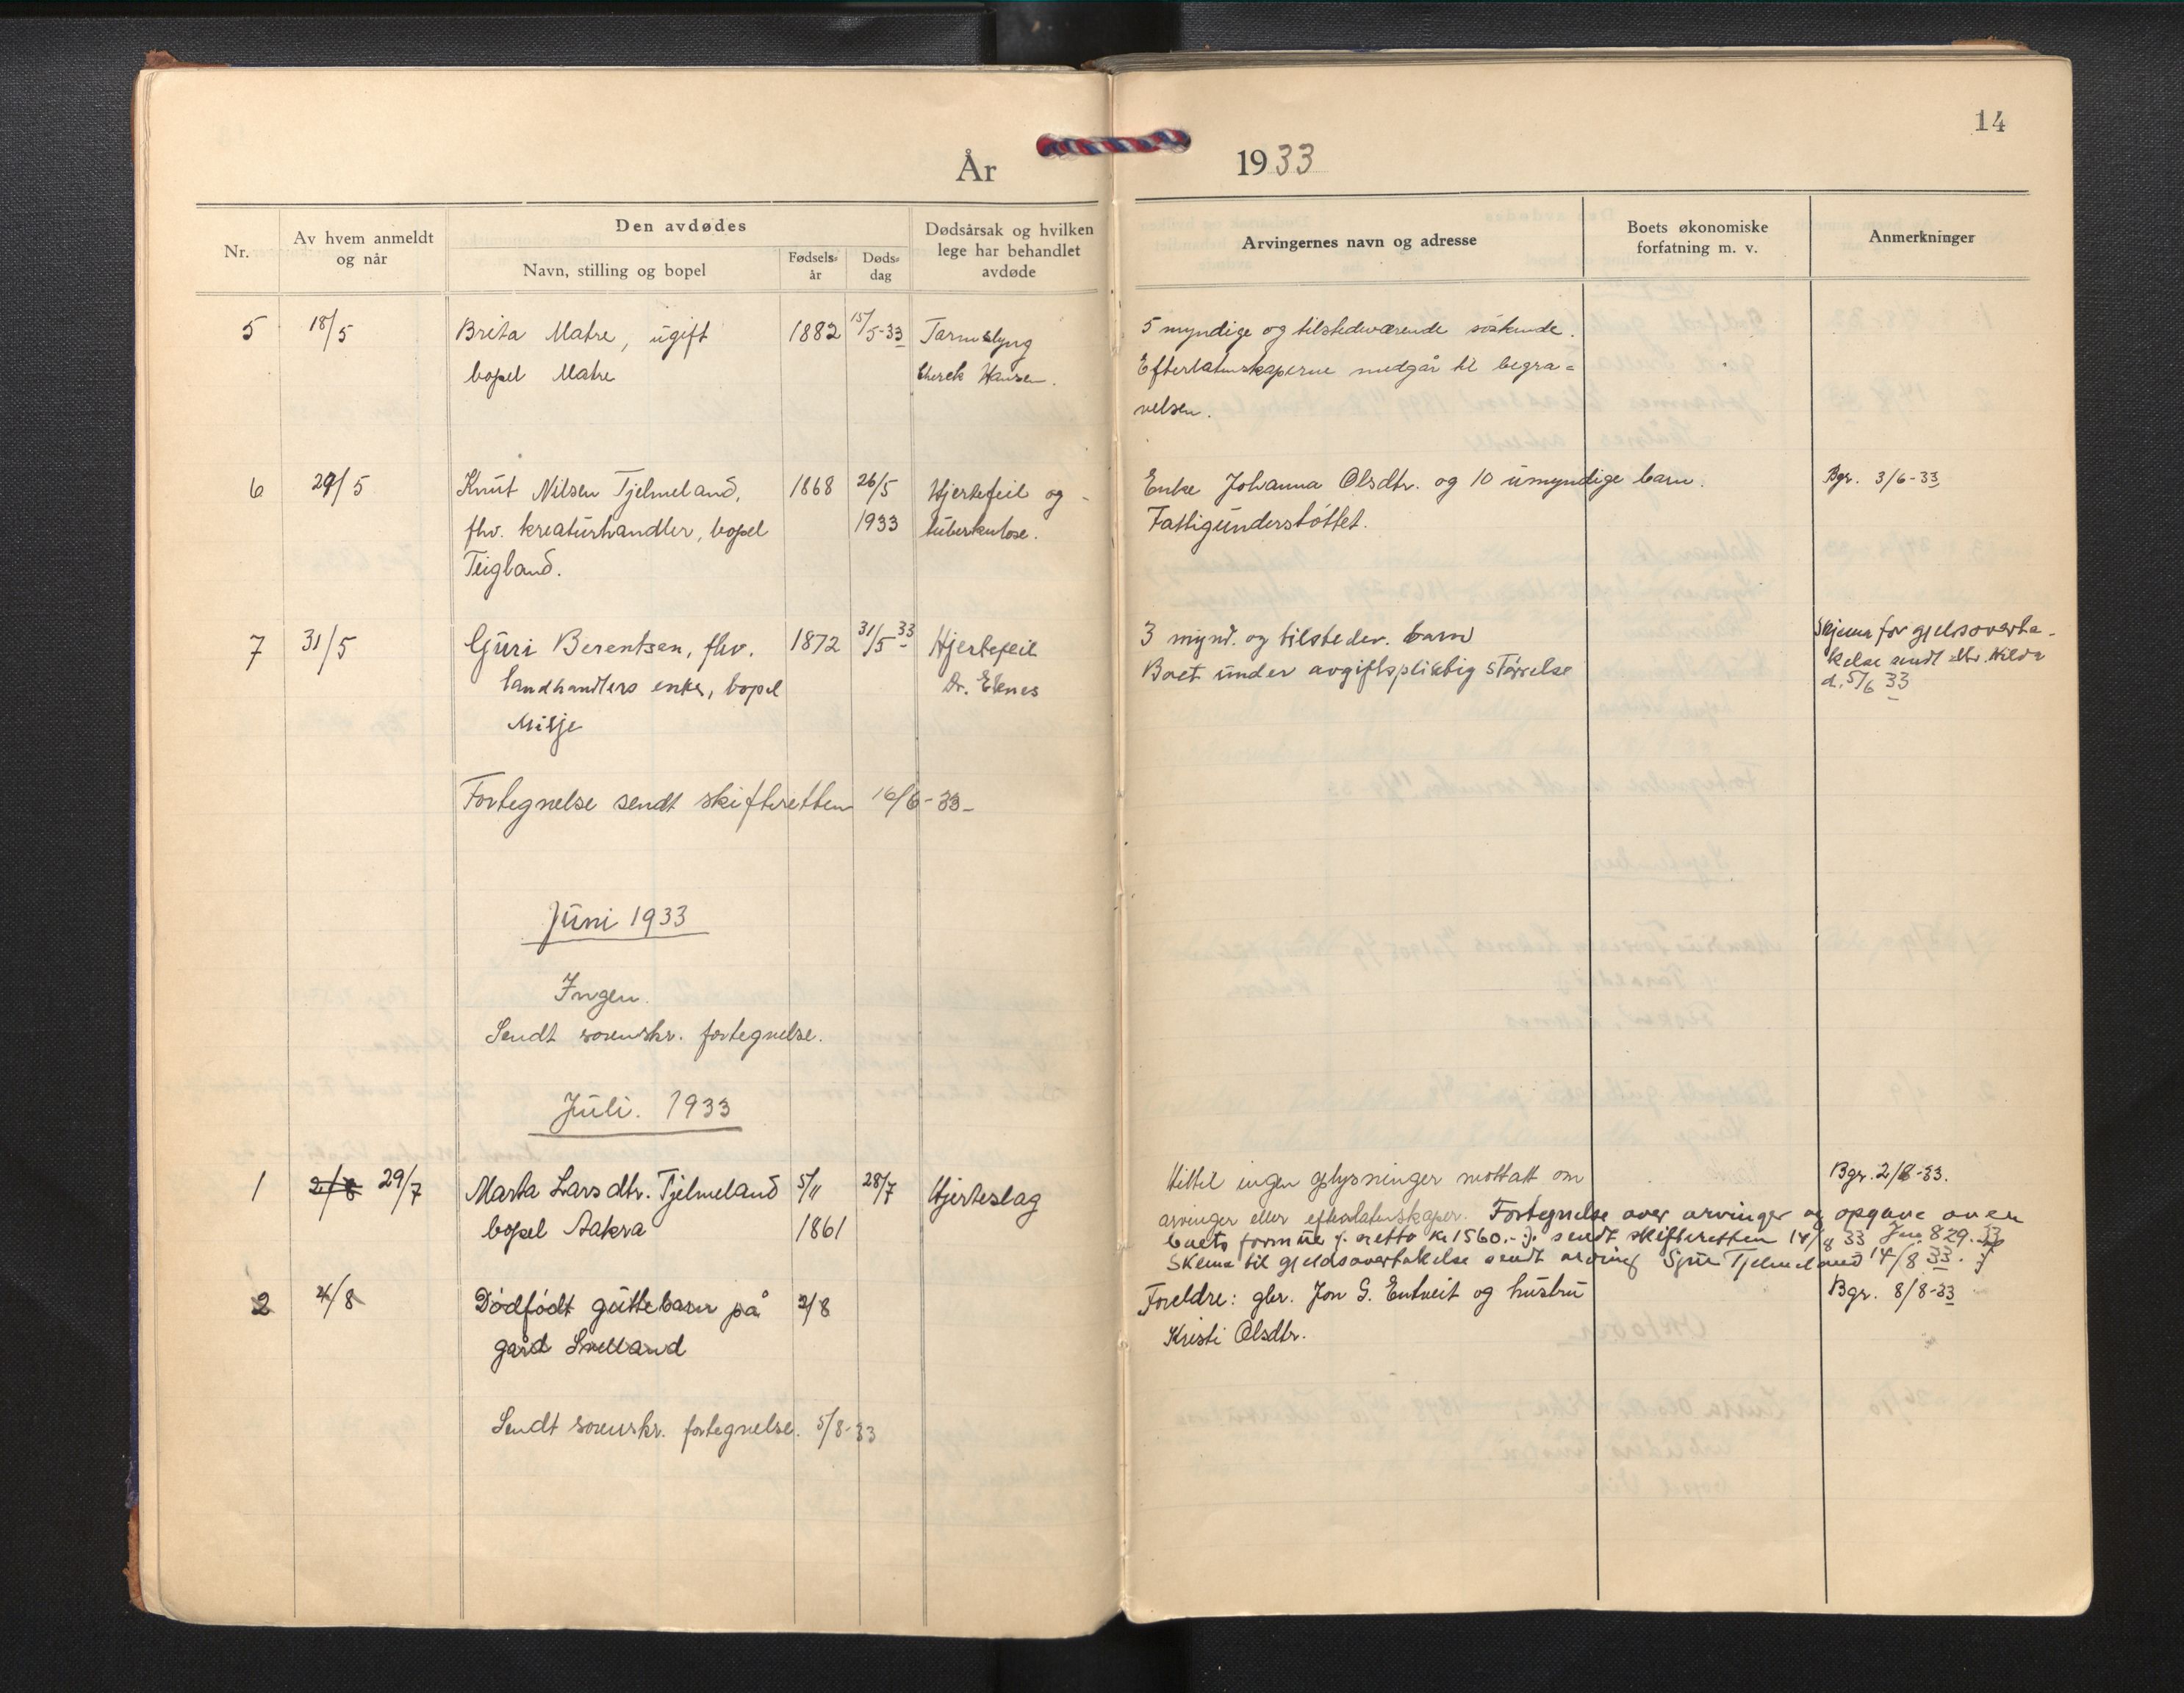 14
År 1933
Nr.
Av hvem anmeldt
og når
Den avdødes
Navn, stilling og bopel
Fødsels-
år
Døds-
dag
Dødsårsak og hvilken
lege har behandlet
avdøde
Arvingernes navn og adresse
Boets økonomiske
forfatning m. v.
Anmerkninger
5 18/5 Brita Matre, ugift 1882 15/5-33 Tarmslyng
bopel Matre Hansen.
5 myndige og tilstedeværende søskende.
Efterlatenskaperne medgår til begra-
velsen.
6 29/5 Knut Nilsen Tjelmeland, 1868 26/5 Hjertefeil og
fhv. kreaturhandler, bopel 1933 tuberkulose.
Teigland.
Enke Johanna Olsdtr. og 10 umyndige barn. Bgr. 3/6-33
Fattigunderstøttet.
7 31/5 Guri Berentsen, fhv. 1872 31/5-33 Hjertefeil
landhandlers enke, bopel Dr. Eknes
Milje
3 mynd. og tilstedev. barn
Boet under avgiftspliktig størrelse
Skjema for gjeldsoverta-
kelse sendt Hilda
d. 5/6 33
Fortegnelse sendt skifteretten 16/6-33-
Juni 1933
Ingen.
Sendt sorenskr. fortegnelse.
Juli. 1933
1 2/8 29/7 Marta Larsdtr. Tjelmeland 5/11 28/7 Hjerteslag
bopel Aakra 1861
Hittil ingen oplysninger mottatt om Bgr. 2/8-33.
arvinger eller efterlatenskaper. Fortegnelse over arvinger og opgave over
boets formue j. netto kr 1560.- j. sendt skifteretten 14/8 33 Jnr 829.33
Skema til gjeldsovertakelse sendt arving Sjur Tjelmeland 14/8 33.
2 4/8 Dødfødt guttebarn på 2/8
gård Skelland
Foreldre: gbr. Jon G. Entveit og hustru Bgr. 8/8-33
Kristi Olsdtr.
Sendt sorenskr. fortegnelse. 5/8-33